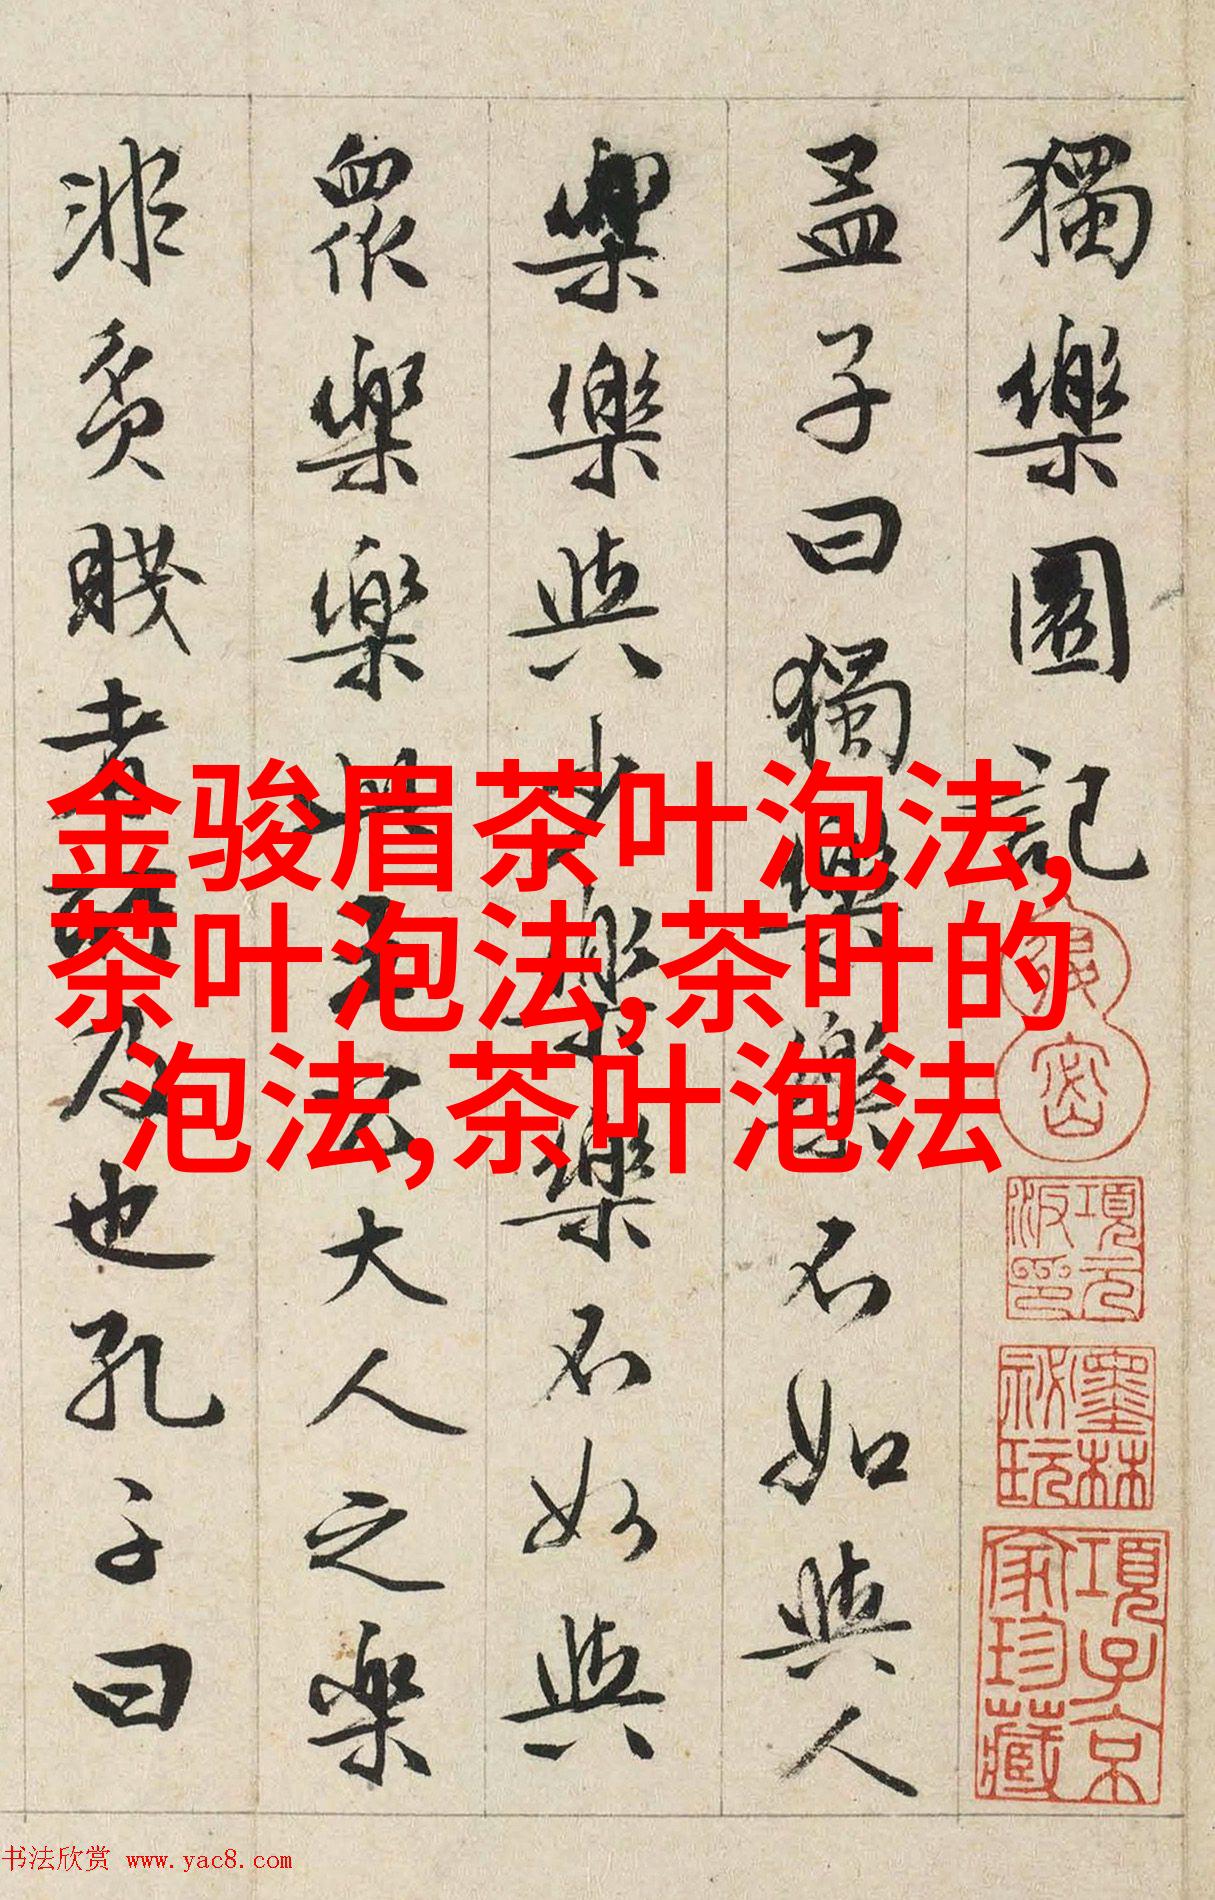 獨樂園記
孟子曰獨樂樂不如與人
樂樂與少樂樂不如與
眾樂樂此王公大人之樂
非貧賤者所及也孔子曰
金骏眉茶叶泡法,
茶叶泡法,茶叶的
泡法,茶叶泡法
項元
汴印
墨林
祕玩
項子京
家珍藏
书法欣赏 www.yac8.com